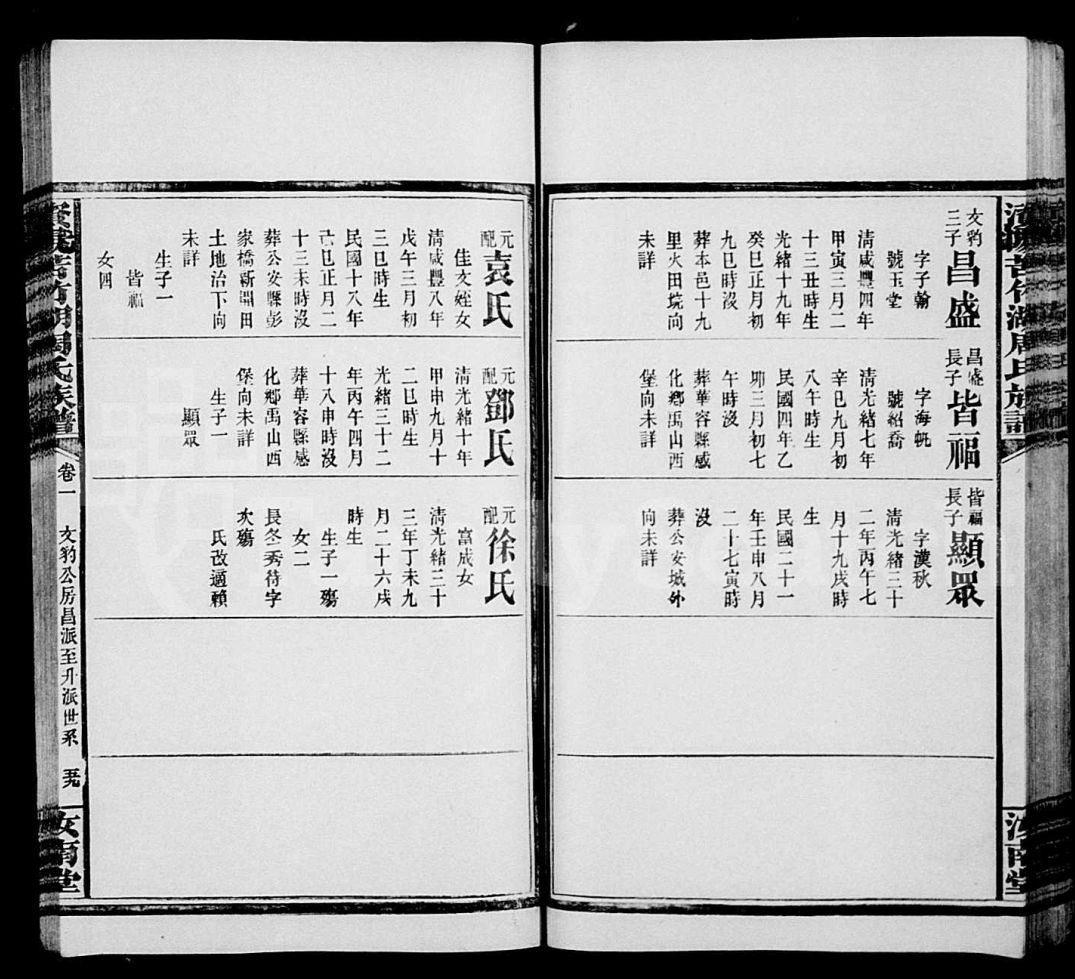 文豹
三子
昌盛
字子翰
號玉堂
清咸豐四年
甲寅三月二
十三丑時生
光緒十九年
癸巳正月初
九巳時沒
葬本邑十九
里火田垸向
未詳
昌盛
長子
皆福
字海帆
號紹喬
清光緒七年
辛巳九月初
八午時生
民國四年乙
卯三月初七
午時沒
葬華容縣感
化鄉禹山西
堡向未詳
皆福
長子
顯眾
字漢秋
清光緒三十
二年丙午七
月十九戌時
生
民國二十一
年壬申八月
二十七寅時
沒
葬公安城外
向未詳
元
配
袁氏
佳文姪女
清咸豐八年
戊午三月初
三巳時生
民國十八年
己巳正月二
十三未時沒
葬公安縣彭
家橋新開田
土地治下向
未詳
生子一
皆福
女四
元
配
鄧氏
清光緒十年
甲申九月十
二巳時生
光緒三十二
年丙午四月
十八申時沒
葬華容縣感
化鄉禹山西
堡向未詳
生子一
顯眾
元
配
徐氏
富成女
清光緒三十
三年丁未九
月二十六戌
時生
生子一殤
女二
長冬秀待字
次殤
氏改適賴
卷一
文豹公房昌派至升派世系
汝南堂
汝南堂